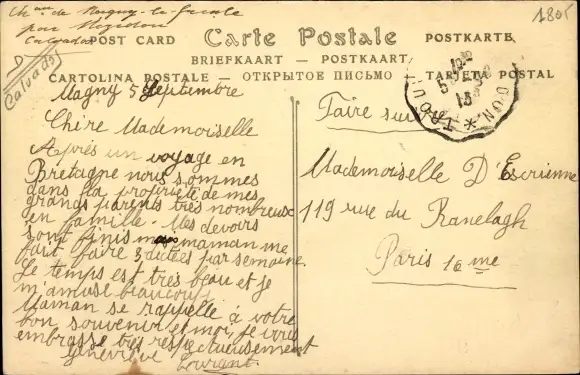 Chau. de Magny-la-
par
Calvados
1805
POST CARD Carte Postale POSTKARTE
BRIEFKAART — POSTKAART
CARTOLINA POSTALE — ОТКРЫТОЕ ПИСЬМО — TARJETA POSTAL
D
Calvados
Magny 5 Septembre
Chère Mademoiselle
Après un voyage en
Bretagne nous sommes
dans la propriété de mes
grands parents très nombreux
en famille. Mes devoirs
sont finis mais maman me
fait faire 3 dictées par semaine.
Le temps est très beau et je
m'amuse beaucoup.
Maman se rappelle à votre
bon souvenir et moi, je vous
embrasse très respectueusement
Geneviève
Faire suivre
Mademoiselle D'Escrienne
119 rue du Ranelagh
Paris 16me